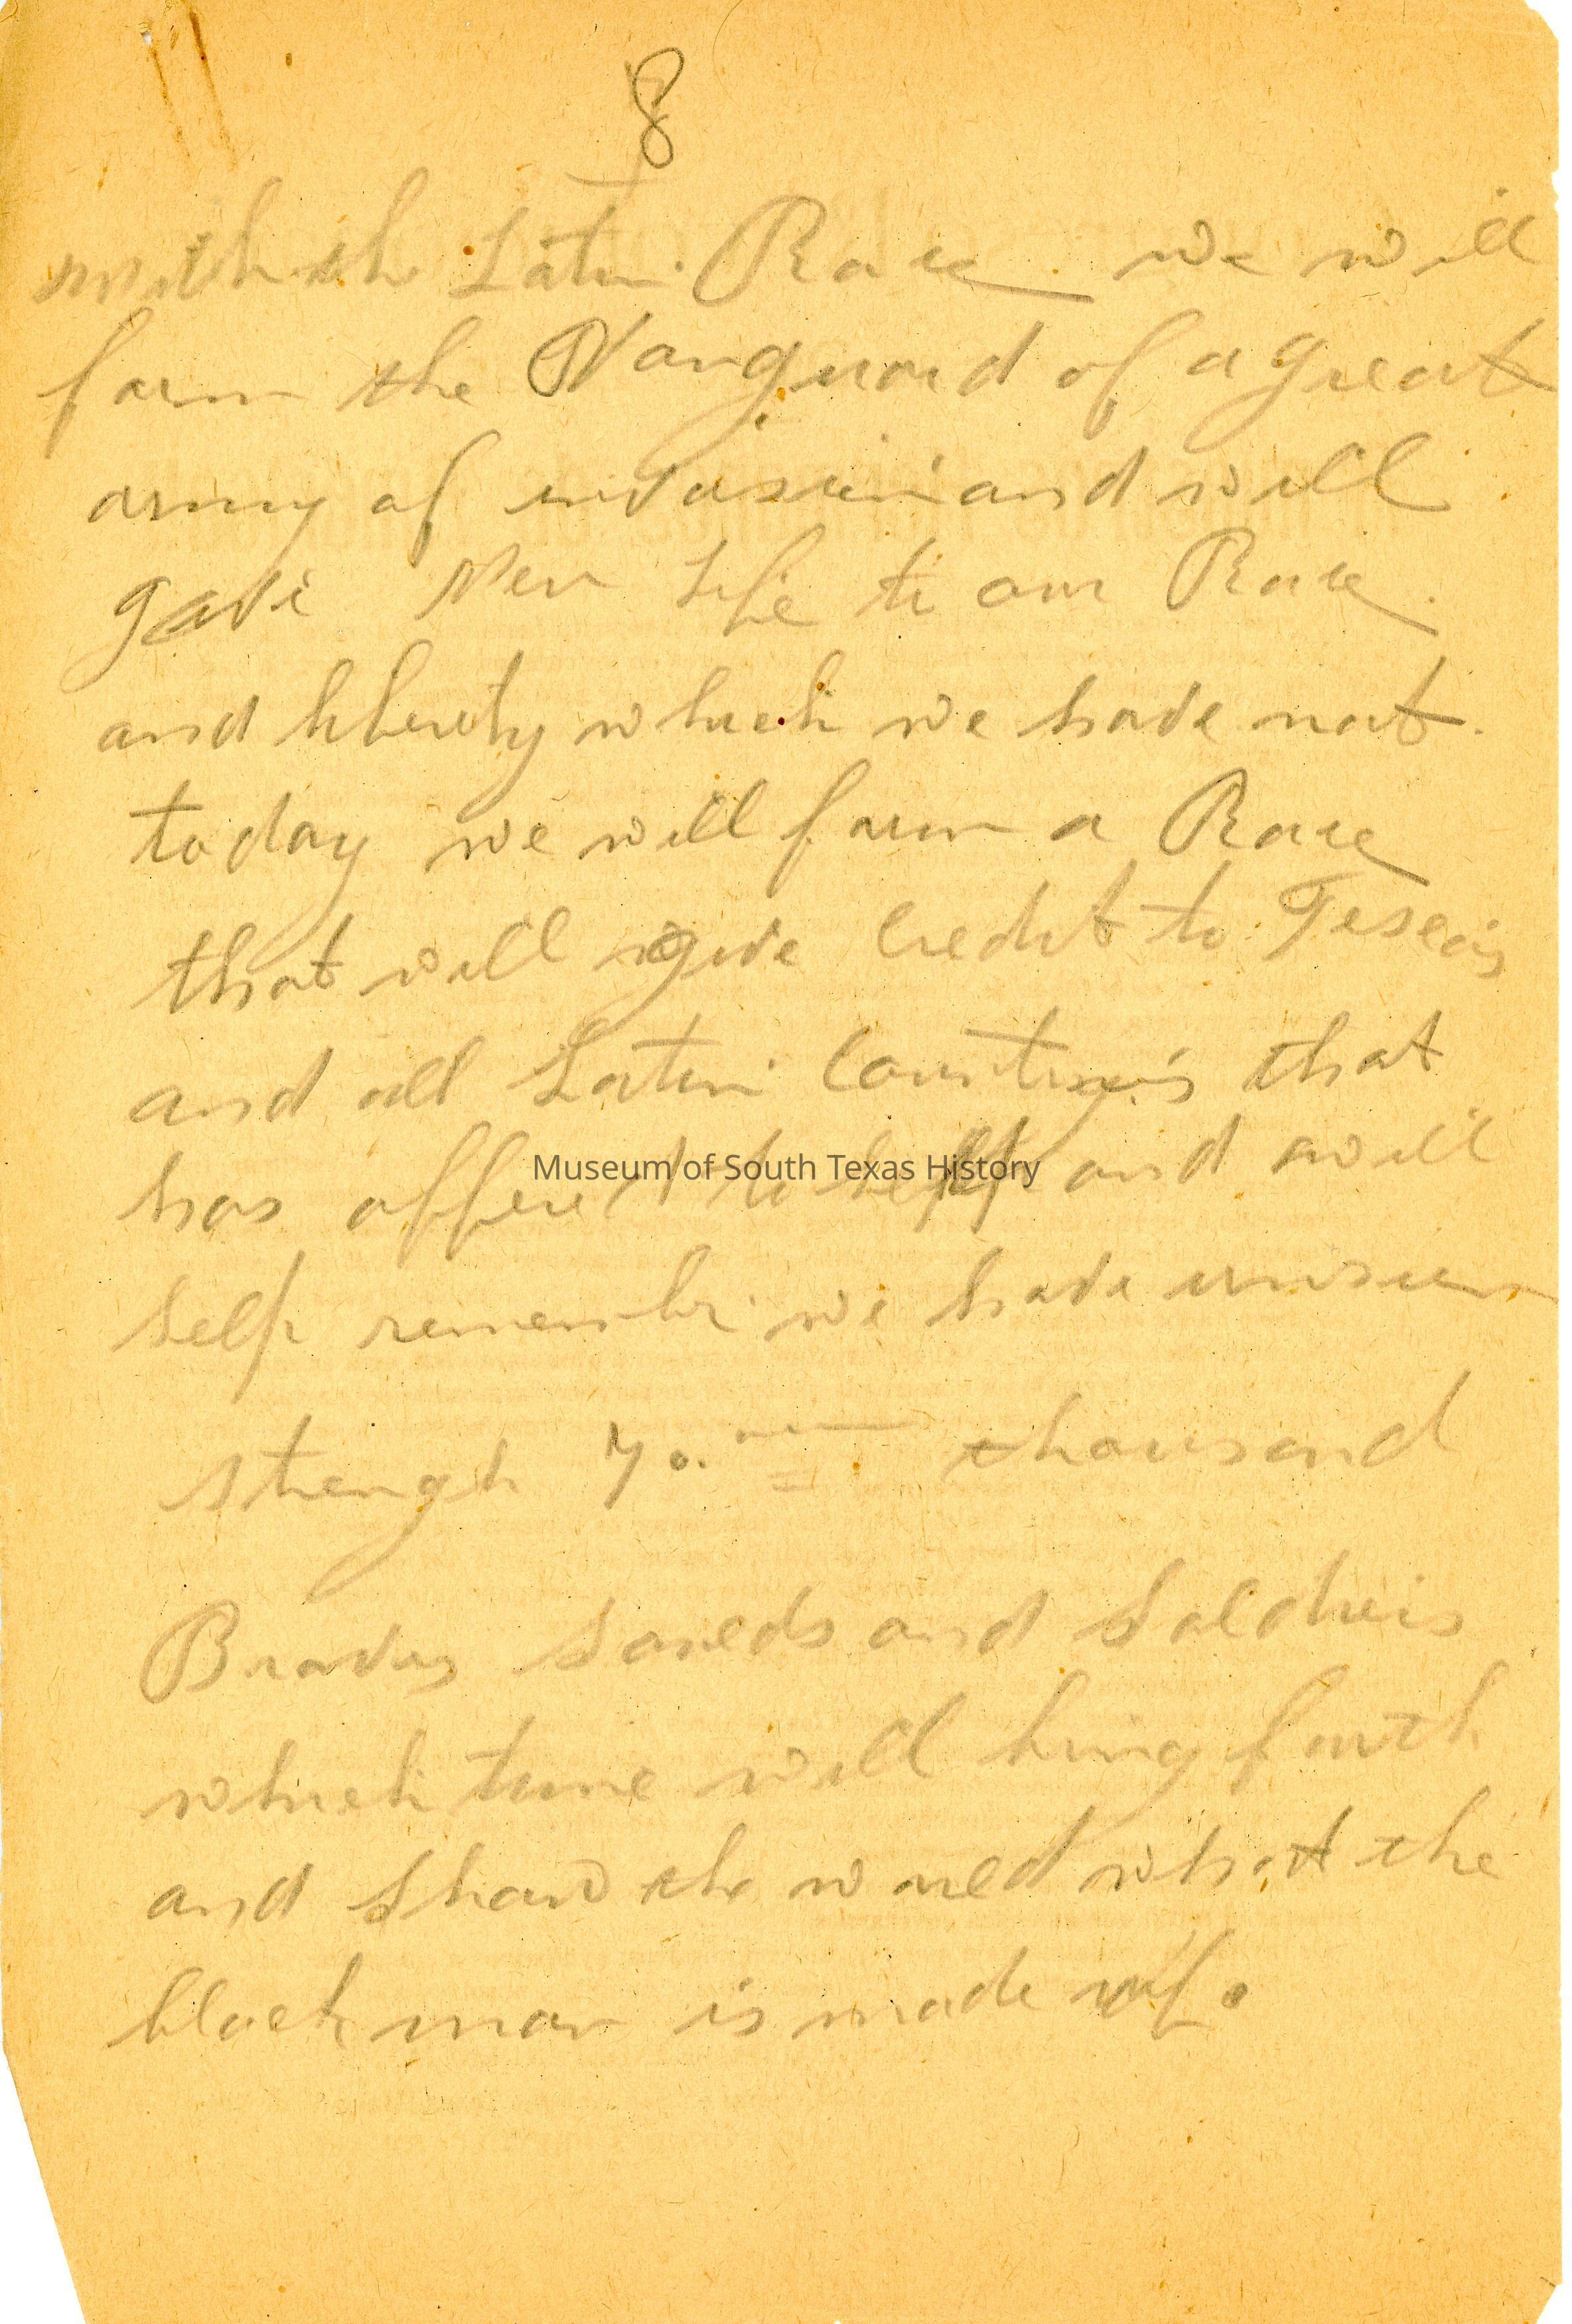 8
with th Latin Race we will
form the Vanguard of a great
army of invasion and will
gave New Life to our Race.
and liberty which we have not
today we will form a Race
that will give credit to
and all Latin that
has offered to help and will
help remember we have
strengh 70. thousand
Braves and Soldiers
which time will bring forth
and Show the world what the
black man is made of.
Museum of South Texas History